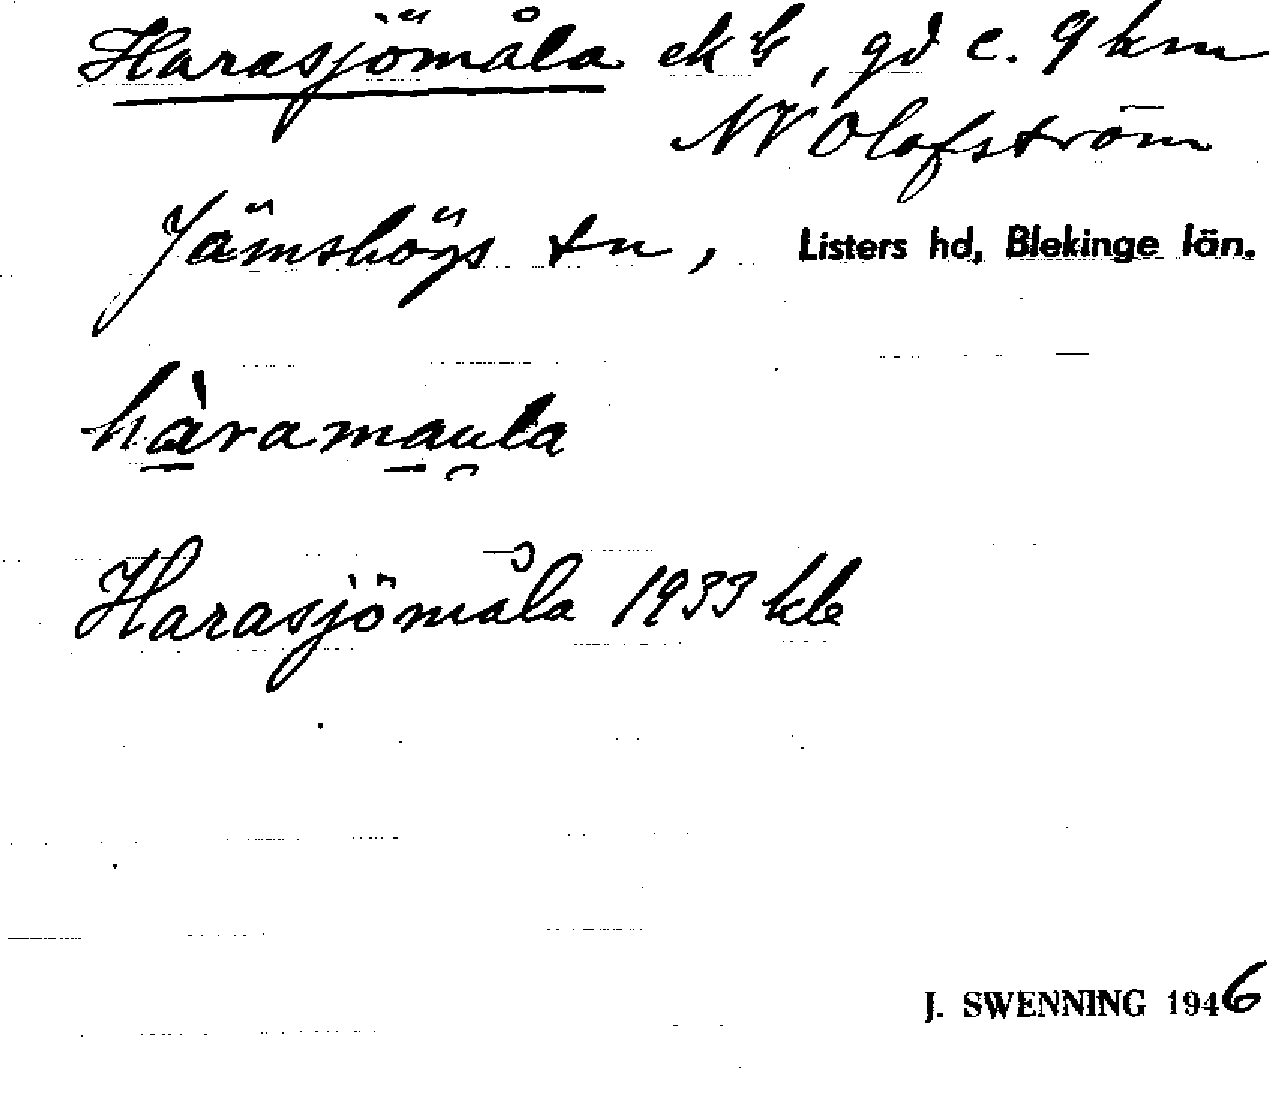 Harasjömåla ekbl, gd c. 9 km
NV Olofström
Jämshögs sn, Listers hd, Blekinge län.
hàramau̯la
Harasjömåla 1933 kbl
J. SWENNING 1946